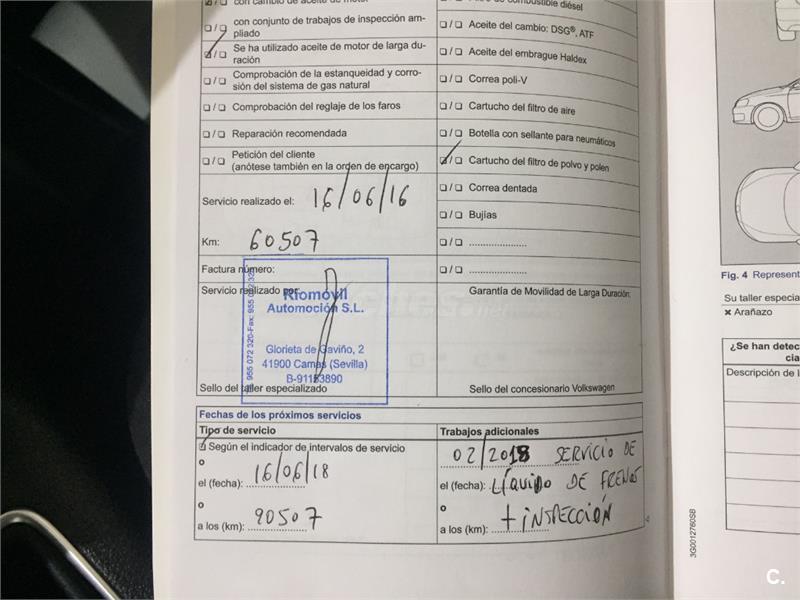 con cambio de aceite de motor
con conjunto de trabajos de inspección am-
pliado
Se ha utilizado aceite de motor de larga du-
ración
Comprobación de la estanqueidad y corro-
sión del sistema de gas natural
Comprobación del reglaje de los faros
Reparación recomendada
Petición del cliente
(anótese también en la orden de encargo)
Servicio realizado el: 16/06/16
Km: 60507
Factura número:
Servicio realizado por:
Riomóvil
Automoción S.L.
Glorieta de Gaviño, 2
41900 Camas (Sevilla)
Sello del taller especializado
de combustible diésel
Aceite del cambio: DSG®, ATF
Aceite del embrague Haldex
Correa poli-V
Cartucho del filtro de aire
Botella con sellante para neumáticos
Cartucho del filtro de polvo y polen
Correa dentada
Bujías
Garantía de Movilidad de Larga Duración:
Sello del concesionario Volkswagen
Fechas de los próximos servicios
Tipo de servicio
Según el indicador de intervalos de servicio
o
el (fecha): 16/06/18
o
a los (km): 90507
Trabajos adicionales
02/2018 SERVICIO DE
el (fecha): LÍQUIDO DE FRENOS
o
a los (km): + INSPECCIÓN
3G0012760SB
Fig. 4 Represent
Su taller especia
Arañazo
¿Se han detec
cia
Descripción de l
C.